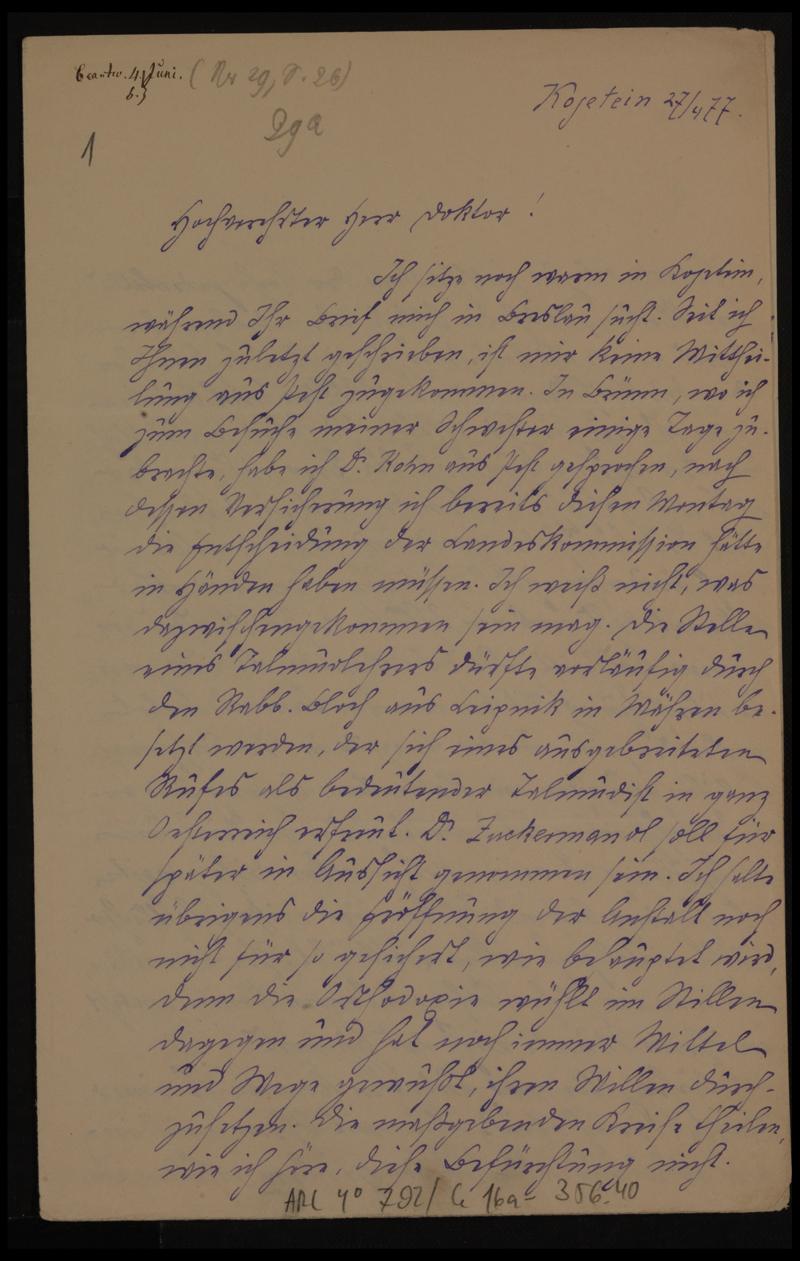 beantw. 4. Juni. (Nr 29, S. 26)
29a
1
Kojetein 27/4 77.
Hochverehrter Herr Doktor!
Ich sitze noch warm in Kojetein,
während Ihr Brief mich in Breslau sucht. Seit ich
Ihnen zuletzt geschrieben, ist mir keine Mitthei-
lung aus Pest zugekommen. In Brünn, wo ich
zum Besuche meiner Schwester einige Tage zu-
brachte, habe ich Dr. Kohn aus Pest gesprochen, nach
dessen Versicherung ich bereits diesen Montag
die Entscheidung der Landeskommission hätte
in Händen haben müssen. Ich weiß nicht, was
dazwischengekommen sein mag. Die Stelle
eines Talmudlehrers dürfte vorläufig durch
den Rabb. Bloch aus Leipnik in Mähren be-
setzt werden, der sich eines ausgebreiteten
Rufes als bedeutender Talmudist in ganz
Oesterreich erfreut. Dr. Zuckermandl soll für
später in Aussicht genommen sein. Ich halte
übrigens die Eröffnung der Anstalt noch
nicht für so gesichert, wie behauptet wird,
denn die Orthodoxie wühlt im Stillen
dagegen und hat noch immer Mittel
und Wege gewußt, ihren Willen durch-
zusetzen. Die maßgebenden Kreise theilen,
wie ich höre, diese Befürchtung nicht.
ARC 4° 792/ C 16a - 356-40